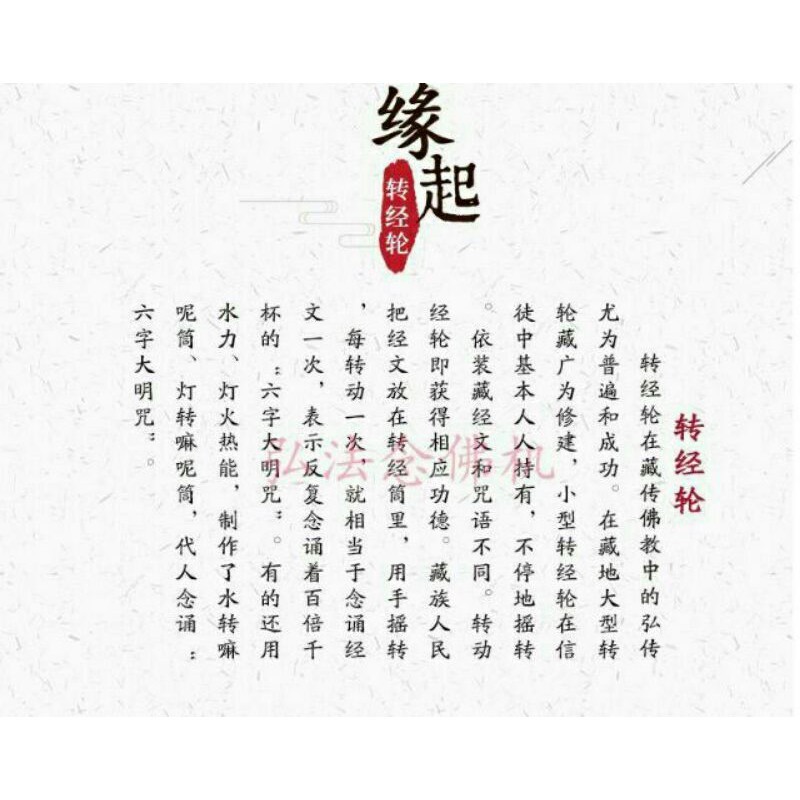 缘起
转经轮
转经轮
转经轮在藏传佛教中的弘传
尤为普遍和成功。在藏地大型转
轮藏广为修建，小型转经轮在信
徒中基本人人持有，不停地摇转
。依装藏经文和咒语不同。转动
经轮即获得相应功德。藏族人民
把经文放在转经筒里，用手摇转
，每转动一次，就相当于念诵经
文一次，表示反复念诵着百倍千
杯的：六字大明咒：。有的还用
水力、灯火热能，制作了水转嘛
呢筒、灯转嘛呢筒，代人念诵：
六字大明咒：。
弘法念佛机